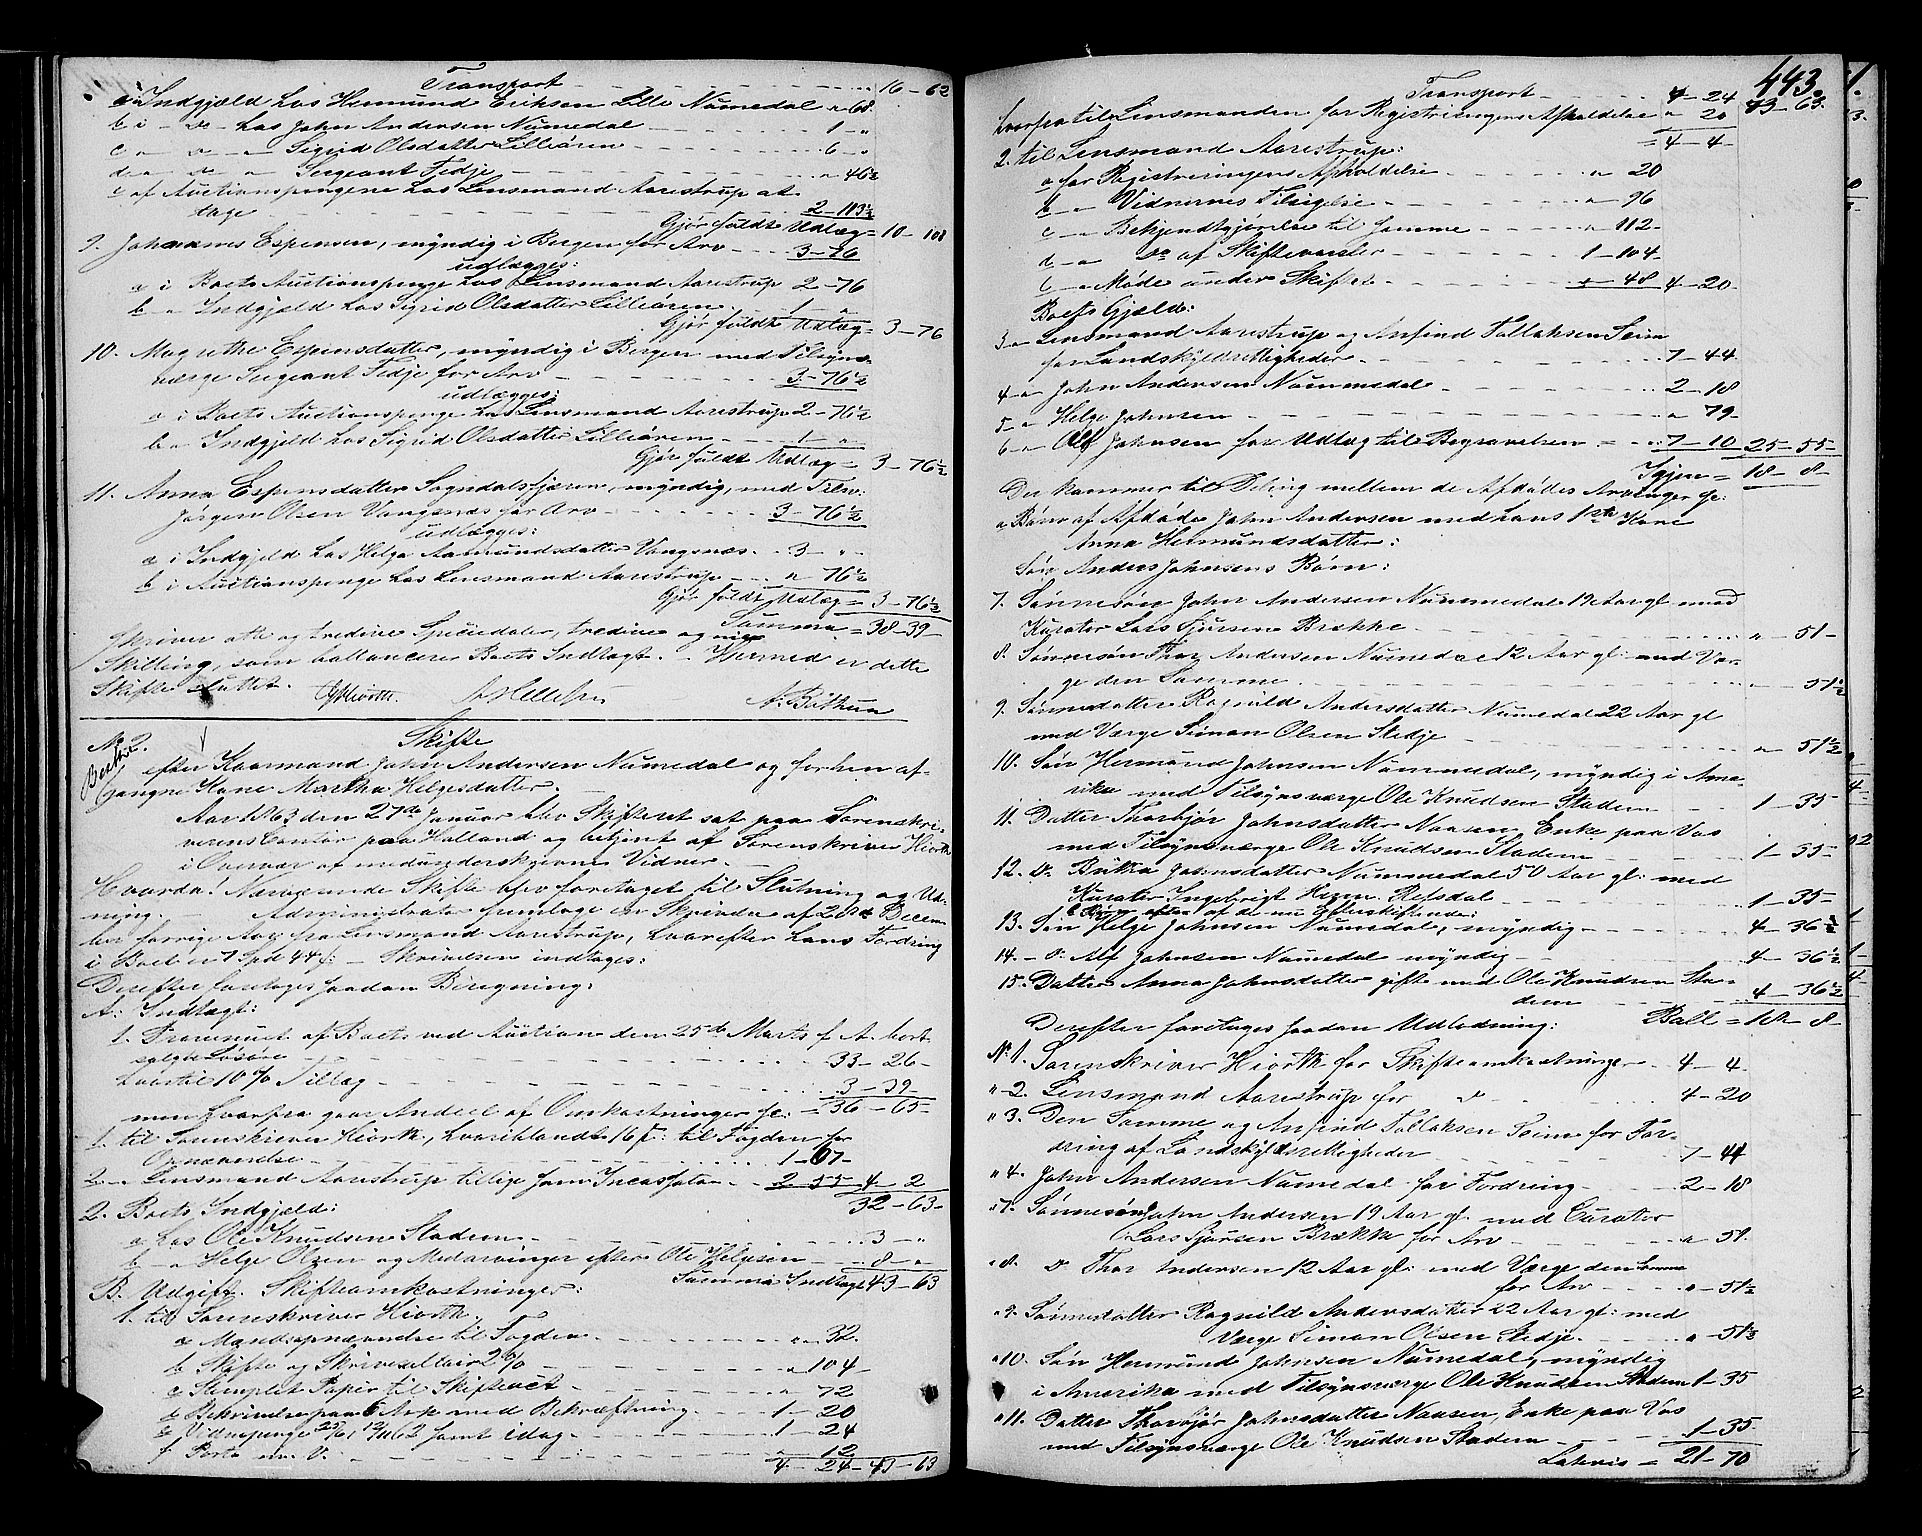 Transport 16 - 62
a i Indgjæld hos Hermund Eriksen Lille Numedal " 68.
b i - do - hos John Andersen Numedal 1 - "
c " - do - " Sigrid Olsdatter Lilleören 6 - "
d " - do - " Sergeant Fedje " 46½
e af Auctionspengene hos Lensmand Aarestrup at
tage 2 - 113½
Gjør fuldt Udlæg = 10 - 108
9. Johannes Espensen, myndig i Bergen for Arv 3 - 76
udlægges:
a i Boets Auctionspenge hos Lensmand Aarestrup 2 - 76
b - " Indgjæld hos Sigrid Olsdatter Lilleören 1 - "
Gjør fuldt Udlæg = 3 - 76
10. Magrethe Espensdatter, myndig i Bergen med Tilsyns-
værge Sergeant Fedje for Arv 3 - 76½
udlægges:
a i Boets Auctionspenge hos Lensmand Aarestrup 2 - 76½
b - " Indgjeld hos Sigrid Olsdatter Lilleören 1 - "
Gjør fuldt Udlæg = 3 - 76½
11. Anna Espensdatter Sogndalsfjæren, myndig, med Tilsv:
Jørgen Olsen Vangsnæs for Arv 3 - 76½
udlægges:
a i Indgjeld hos Helga Aamundsdatter Vangsnæs 3 - "
b i Auctionspenge hos Lensmand Aarestrup " 76½
Gjør fuldt Udlæg = 3 - 76½
Summa = 38 - 39
skriver otte og tredive Speciedaler, tredive og nige
Skilling, som ballancerer Boets Indtægt. - Hermed er dette
Skifte sluttet. Hiorth.
No 2. Skifte
efter Kaarmand John Andersen Numedal og forhen af-
gangne Kone Martha Helgesdatter.
Aar 1863 den 27de Januar blev Skifteret sat paa Sorenskri-
verens Contor paa Halland og betjent af Sorenskriver Hiorth
i Overvær af medunderskrevne Vidner. -
Hvorda! Nærværende Skifte blev foretaget til Slutning og Ud-
ning. Administrator fremlagde en Skrivelse af 20de Decem-
ber forrige Aar fra Lensmand Aarestrup, hvorefter hans Fordring
i Boet er 7 Spd 44 s: - Skrivelsen indtages:
Derefter foretages saadan Beregning:
A: Indtægt:
1. Provenuet af Boets ved Auction den 25de Marts f. A. bort
solgte Løsøre 33 - 26 -
hvortil 10 % Tillæg 3 - 39 -
men hvorfra gaar Andeel af Omkostninger sc: = 36 - 65 -
1. til Sorenskriver Hiorth, hvoriblandt 16 s: til Fogden for
Opnævnelse 1 - 67 -
2 - " Lensmand Aarestrup tillige som Incassator 2 55 - 4 - 2
32 - 63 -
2. Boets Indgjæld:
a hos Ole Knudsen Stadem 3 - "
b - " Helge Olsen og Medarvinger efter Ole Helgesen 8 - "
Summa Indtægt 43 - 63
B. Udgift. Skifteomkostninger:
1. til Sorenskriver Hiorth.
a Mandsopnævnelse til Fogden " 32.
b Skifte og Skrivesallair 2 % " 104 -
c Stemplet Papir til Skifteret " 72
d Beskrivelse paa 5 Ark med Bekræftning 1 - 20
e Vidnepenge samt idag 1 - 24
f Porto m. V. - 12
4 - 24 - 43 - 63
443
Transport 4 - 24 43 - 63
hvorfra til Lensmanden for Registreringens Afholdelse " 20
= 4 - 4 -
2. til Lensmand Aarestrup:
a for Registreringens Afholdelse " 20
b - " Vidnernes Tilsigelse " 96
c - " Bekjendtgjørelse til Samme " 112 -
d - " do af Skiftevarsler 1 - 104 -
e - " Møde under Skiftet " 48 4 - 20 -
Boets Gjæld:
3 - " Lensmand Aarestrup og Anfind Tollaksen Seim
for Landskyldrettigheder 7 - 44 -
4 - " John Andersen Nummedal 2 - 18
5 - " Helge Johnsen " 79 -
6 - " Olf Johnsen for Udlæg til Begravelsen 7 - 10 25 - 55 -
Igjen = 18 - 8 -
Der kommer til Deling mellem de Afdødes Arvinger sc:
a Børn af Afdøde John Andersen med hans 1ste Kone
Anna Hermundsdatter:
Søn Anders Johnsens Børn:
7. Sønnesøn John Andersen Nummedal 19 Aar gl med
Kurator Lars Sjursen Brække " - 51 -
8. Sønnesøn Thor Andersen Numedal 12 Aar gl: med Vær-
ge den Samme " - 51½
9. Sønnedatter Ragnild Andersdatter Numedal 22 Aar gl
med Værge Simon Olsen Stedje " - 51½
10. Søn Hermund Johnsen Nummedal, myndig i Ame-
rika med Tilsynsværge Ole Knudsen Stadem 1 - 35 -
11. Datter Thorbjør Johnsdatter Naasen, Enke paa Vos
med Tilsynsværge Ole Knudsen Stadem 1 - 35 -
12. do Brita Johnsdatter Nummedal 50 Aar gl: med
Kurator Ingebrigt Refsdal 1 - 35 -
13. Søn Helge Johnsen Numedal, myndig 4 - 36½
14. - do: Alf Johnsen Numedal myndig 4 - 36½
15. Datter Anna Johnsdatter gift med Ole Knudsen Sta-
dem 4 - 36½
Ball = 18 - 8 -
Derefter foretages saadan Udlodning:
No 1. Sorenskriver Hiorth for Skifteomkostninger 4 - 4.
" 2. Lensmand Aarestrup for do 4 - 20
" 3. Den Samme og Anfind Tollaksen Seim for For-
dring af Landskyldrettigheder 7 - 44
" 4. John Andersen Numedal for Fordring 2 - 18
" 7. Sønnesøn John Andersen 19 Aar gl. med Curator
Lars Sjursen Brække for Arv " 51.
" 8. do Thor Andersen 12 Aar gl: med Værge den Samme
for Arv " - 51½
" 9. Sønnedatter Ragnild Andersdatter 22 Aar gl: med
Værge Simon Olsen Stedje " - 51½
" 10. Søn Hermund Johnsen Numedal, myndig
i Amerika med Tilsynsværge Ole Knudsen Stadem 1 - 35
" 11. Datter Thorbjør Johnsdatter Naasen, Enke paa Vos
med Tilsynsværge Ole Knudsen Stadem 1 - 35 -
Latevis = 21 - 70